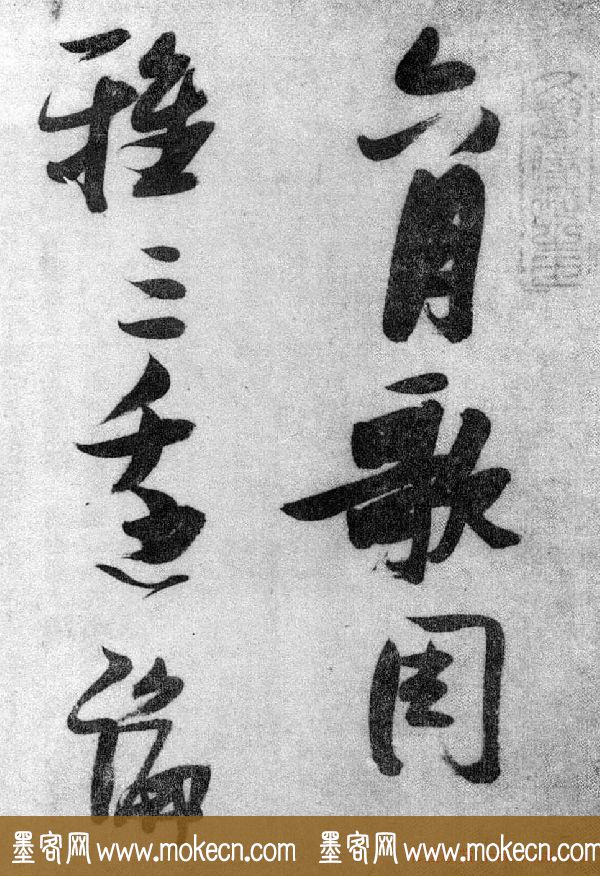 六月歌周
雅三
墨客网 www.mokecn.com 墨客网 www.mokecn.com